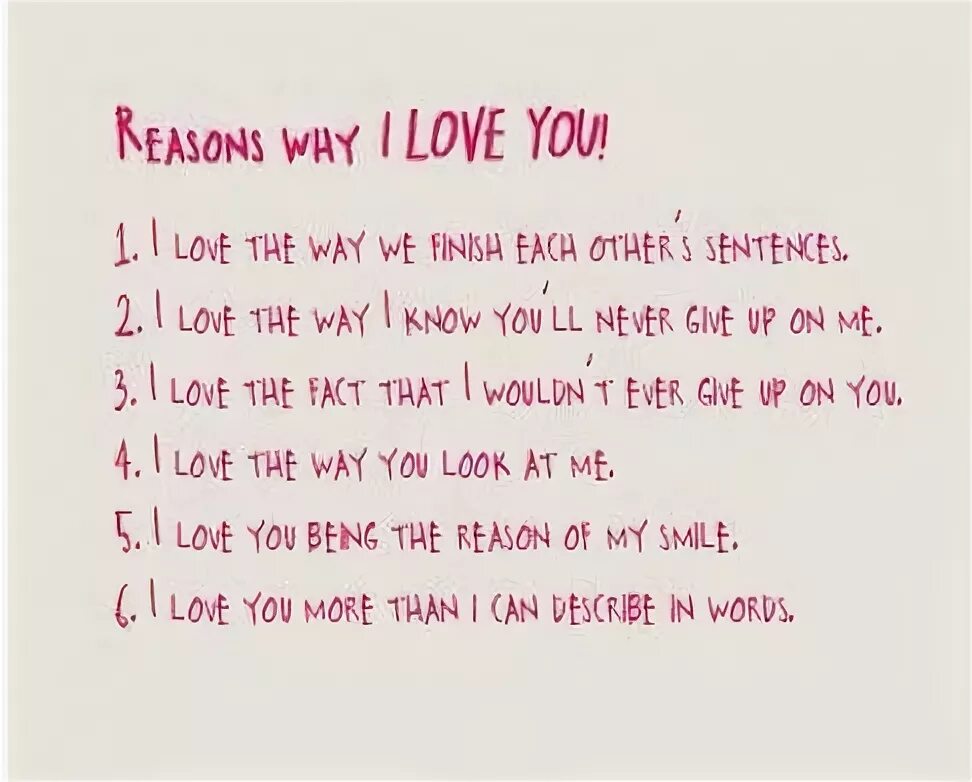 REASONS WHY I LOVE YOU!
1. I LOVE THE WAY WE FINISH EACH OTHER'S SENTENCES.
2. I LOVE THE WAY I KNOW YOU'LL NEVER GIVE UP ON ME.
3. I LOVE THE FACT THAT I WOULDN'T EVER GIVE UP ON YOU.
4. I LOVE THE WAY YOU LOOK AT ME.
5. I LOVE YOU BEING THE REASON OF MY SMILE.
6. I LOVE YOU MORE THAN I CAN DESCRIBE IN WORDS.